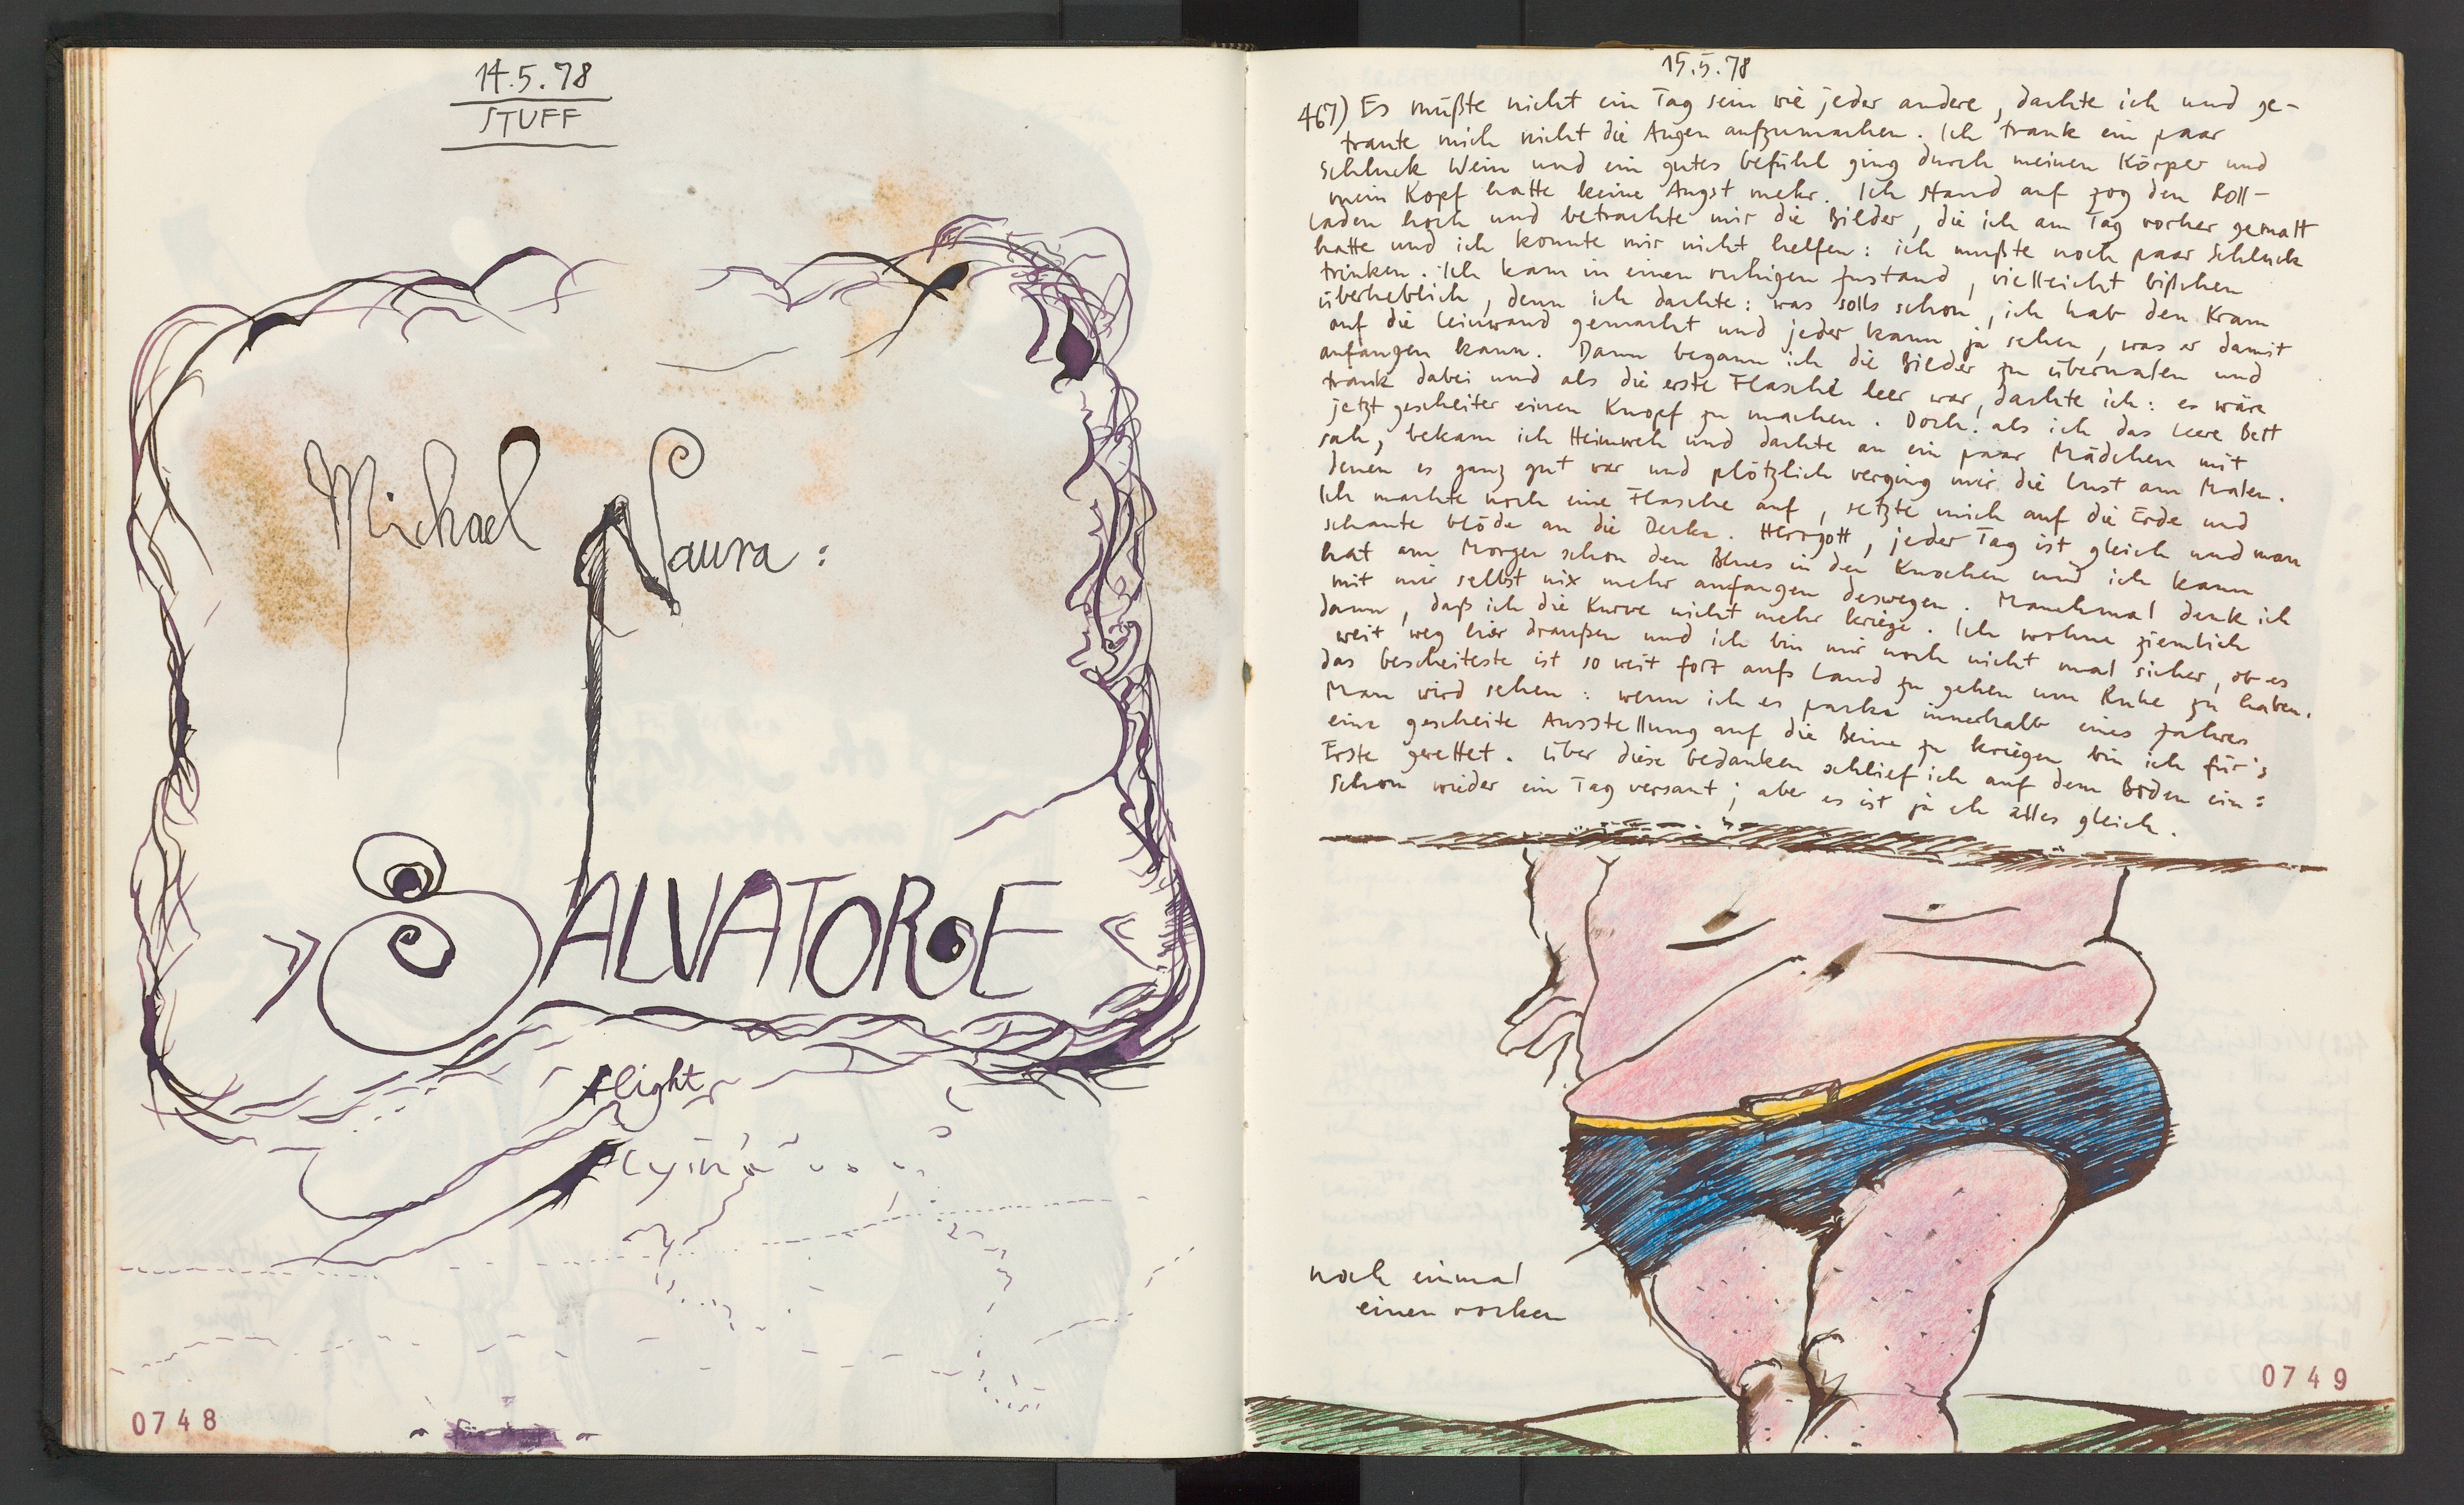 14.5.78
STUFF
Michael Naura:
SALVATORE
flight
flying
0748
15.5.78
467) Es müßte nicht ein Tag sein wie jeder andere, dachte ich und ge-
traute mich nicht die Augen aufzumachen. Ich trank ein paar
Schluck Wein und ein gutes Gefühl ging durch meinen Körper und
mein Kopf hatte keine Angst mehr. Ich stand auf zog den Roll-
laden hoch und betrachte mir die Bilder, die ich am Tag vorher gemalt
hatte und ich konnte mir nicht helfen: ich mußte noch paar Schluck
trinken. Ich kam in einen ruhigen Zustand, vielleicht bißchen
überheblich, denn ich dachte: was solls schon, ich hab den Kram
auf die Leinwand gemacht und jeder kann ja sehen, was er damit
anfangen kann. Dann begann ich die Bilder zu übermalen und
trank dabei und als die erste Flasche leer war, dachte ich: es wäre
jetzt gescheiter einen Knopf zu machen. Doch: als ich das leere Bett
sah, bekam ich Heimweh und dachte an ein paar Mädchen mit
denen es ganz gut war und plötzlich verging mir die Lust am Malen.
Ich machte noch eine Flasche auf, setzte mich auf die Erde und
schaute blöde an die Decke. Herrgott, jeder Tag ist gleich und man
hat am Morgen schon den Blues in den Knochen und ich kann
mit mir selbst nix mehr anfangen deswegen. Manchmal denk ich
dann, daß ich die Kurve nicht mehr kriege. Ich wohne ziemlich
weit weg hier draußen und ich bin mir noch nicht mal sicher, ob es
das Gescheiteste ist so weit fort aufs Land zu gehen um Ruhe zu haben.
Man wird sehen: wenn ich es packe innerhalb eines Jahres
eine gescheite Ausstellung auf die Beine zu kriegen bin ich für's
Erste gerettet. Über diese Gedanken schlief ich auf dem Boden ein:
Schon wieder ein Tag versaut; aber es ist ja eh alles gleich.
noch einmal
einen rocken
0749